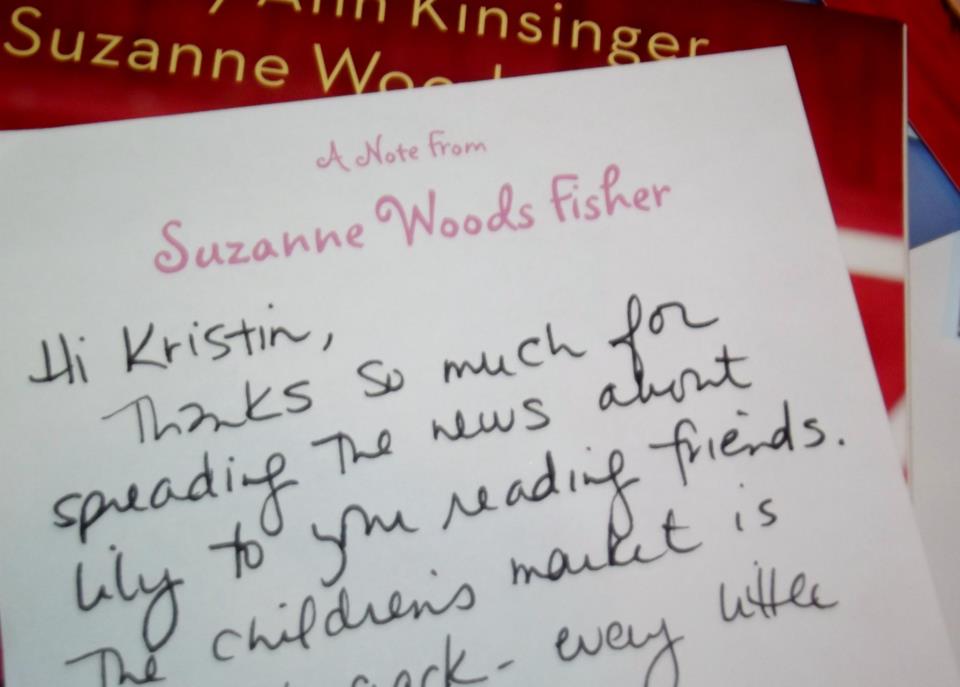 Ann Kinsinger
Suzanne Woo
A Note From
Suzanne Woods Fisher
Hi Kristin,
Thanks so much for
spreading the news about
Lily to your reading friends.
The children's market is
every little